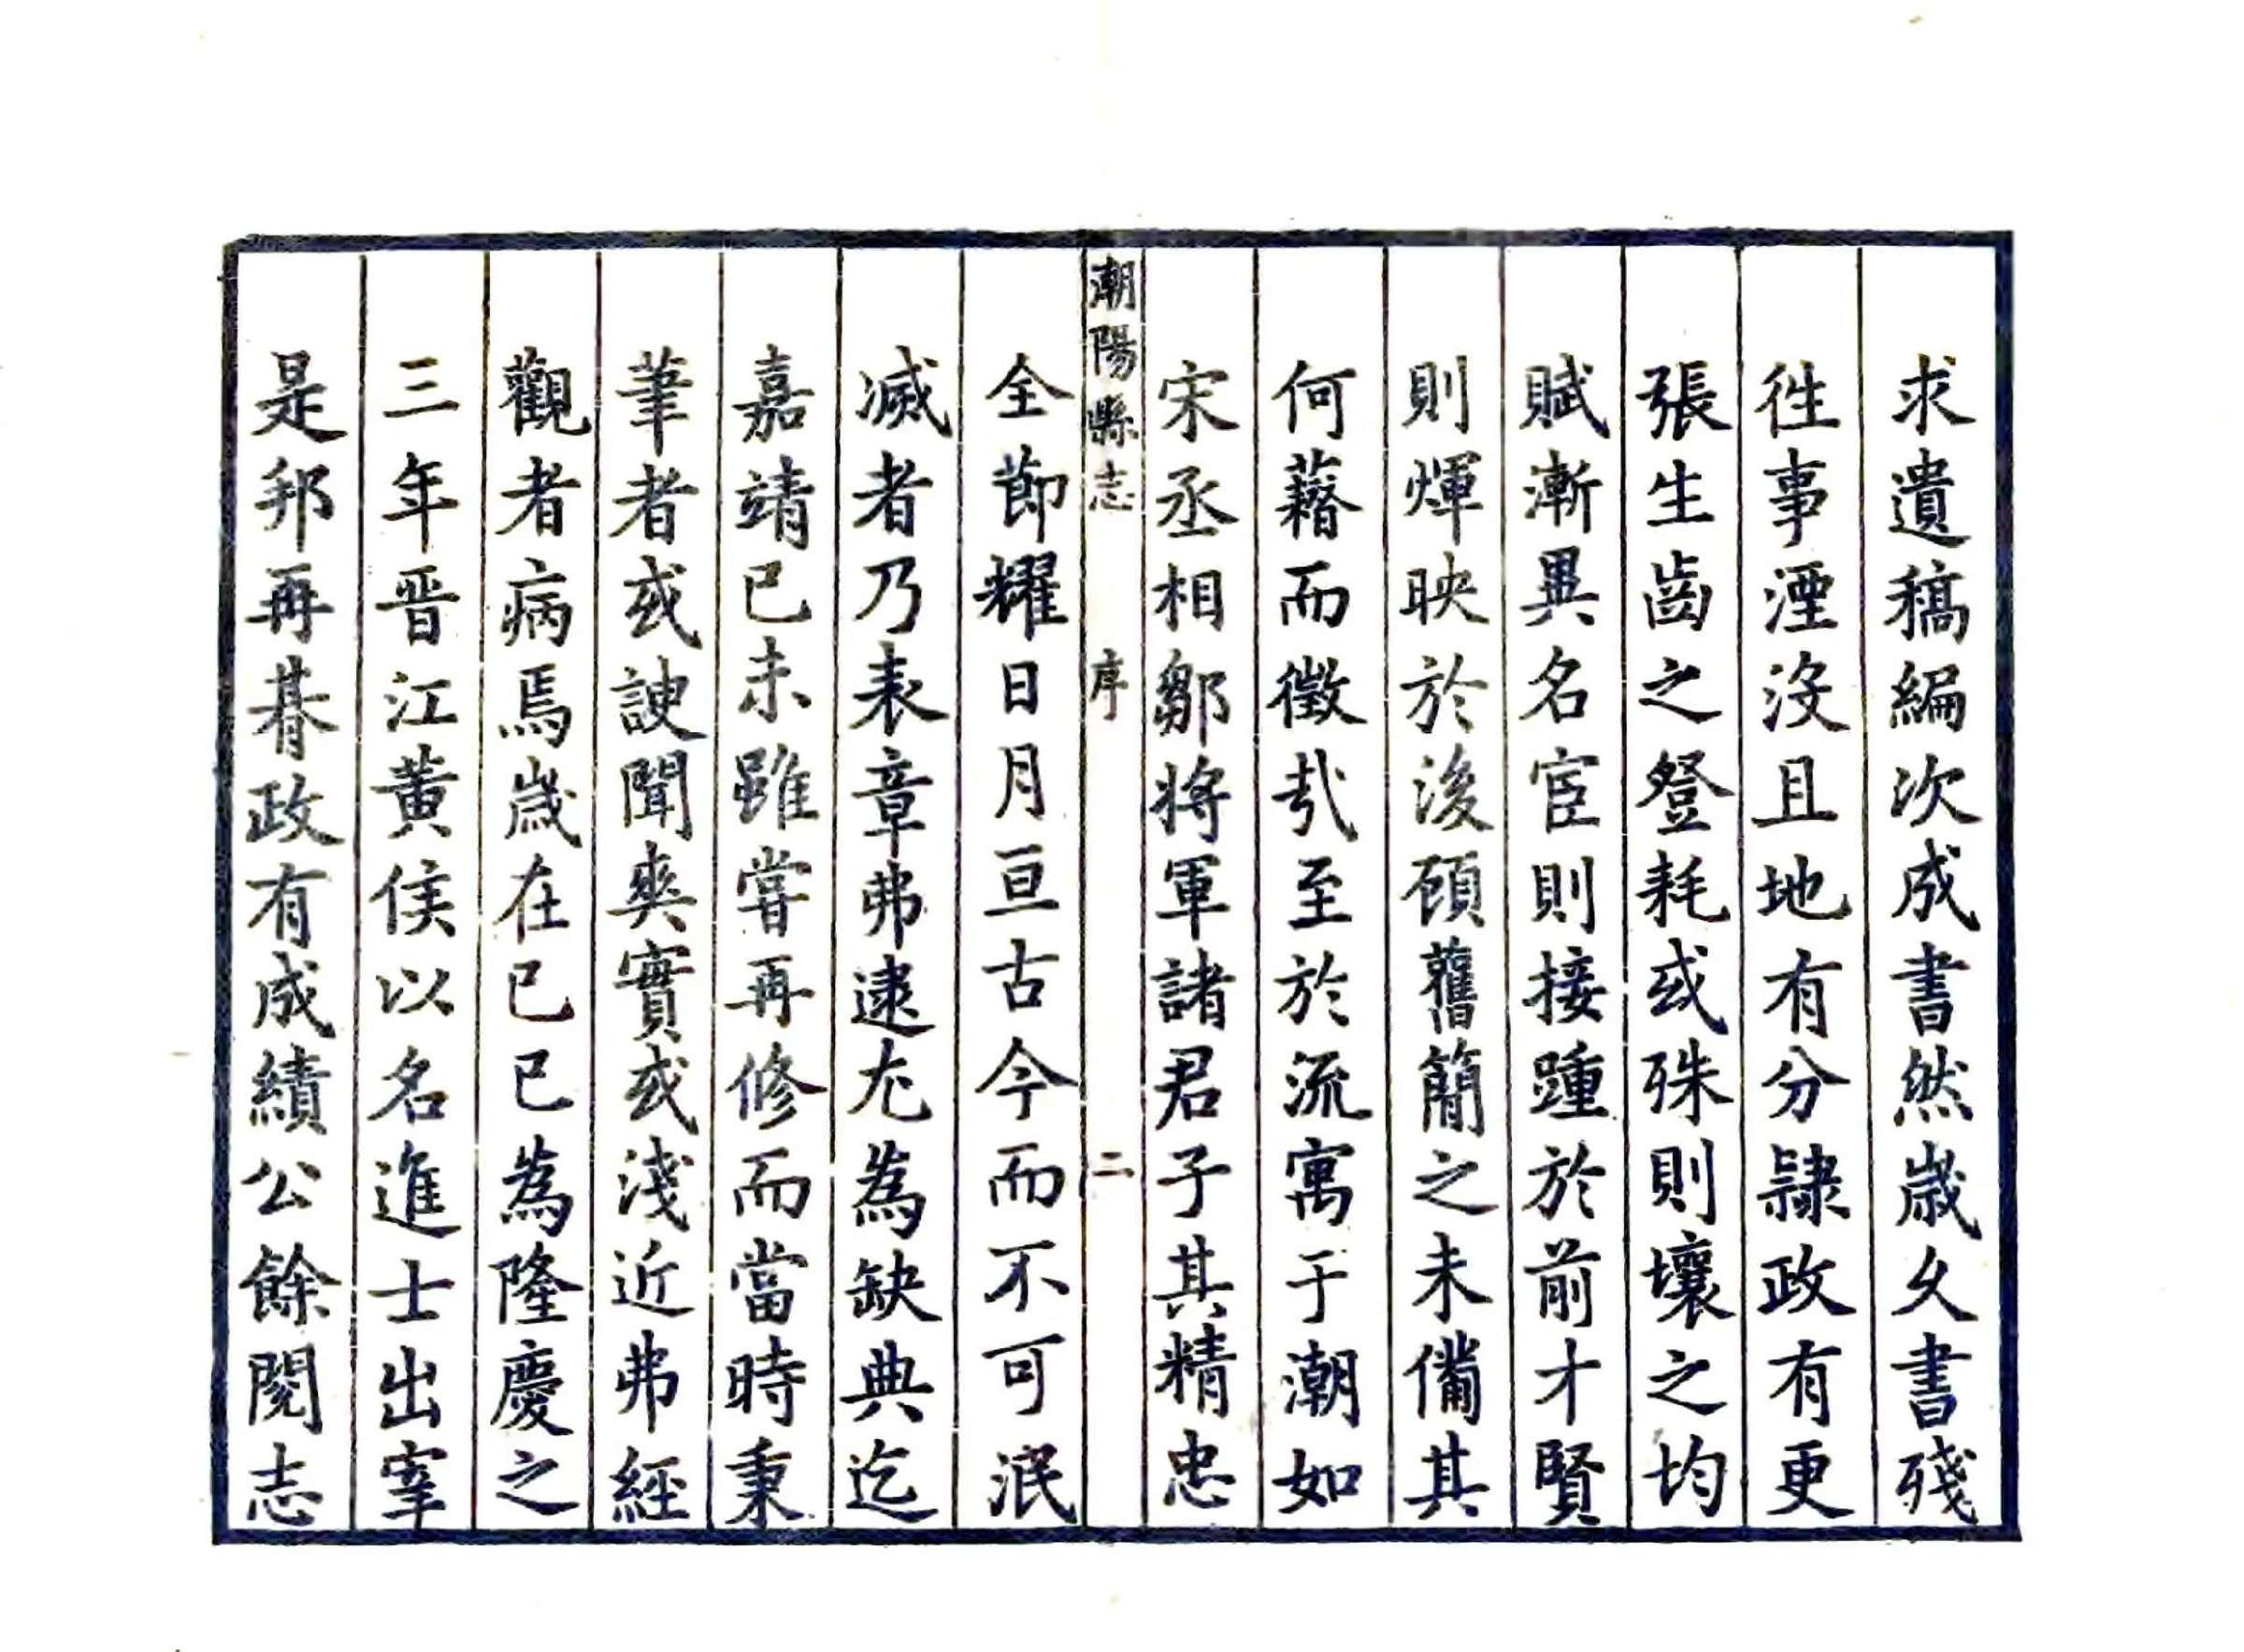 求遺稿編次成書然歲久書殘
徃事湮沒且地有分隷政有更
張生齒之登耗或殊則壤之均
賦漸異名宦則接踵於前才賢
則煇映於後顧舊簡之未備其
何藉而徵㢤至於流寓于潮如
宋丞相鄒將軍諸君子其精忠
潮陽縣志 序 二
全節耀日月亘古今而不可泯
滅者乃表章弗逮尤為缺典迄
嘉靖已未雖嘗再修而當時秉
筆者或諛聞爽實或淺近弗經
觀者病焉歲在已已為隆慶之
三年晋江黃侯以名進士出宰
是邦再朞政有成績公餘閱志